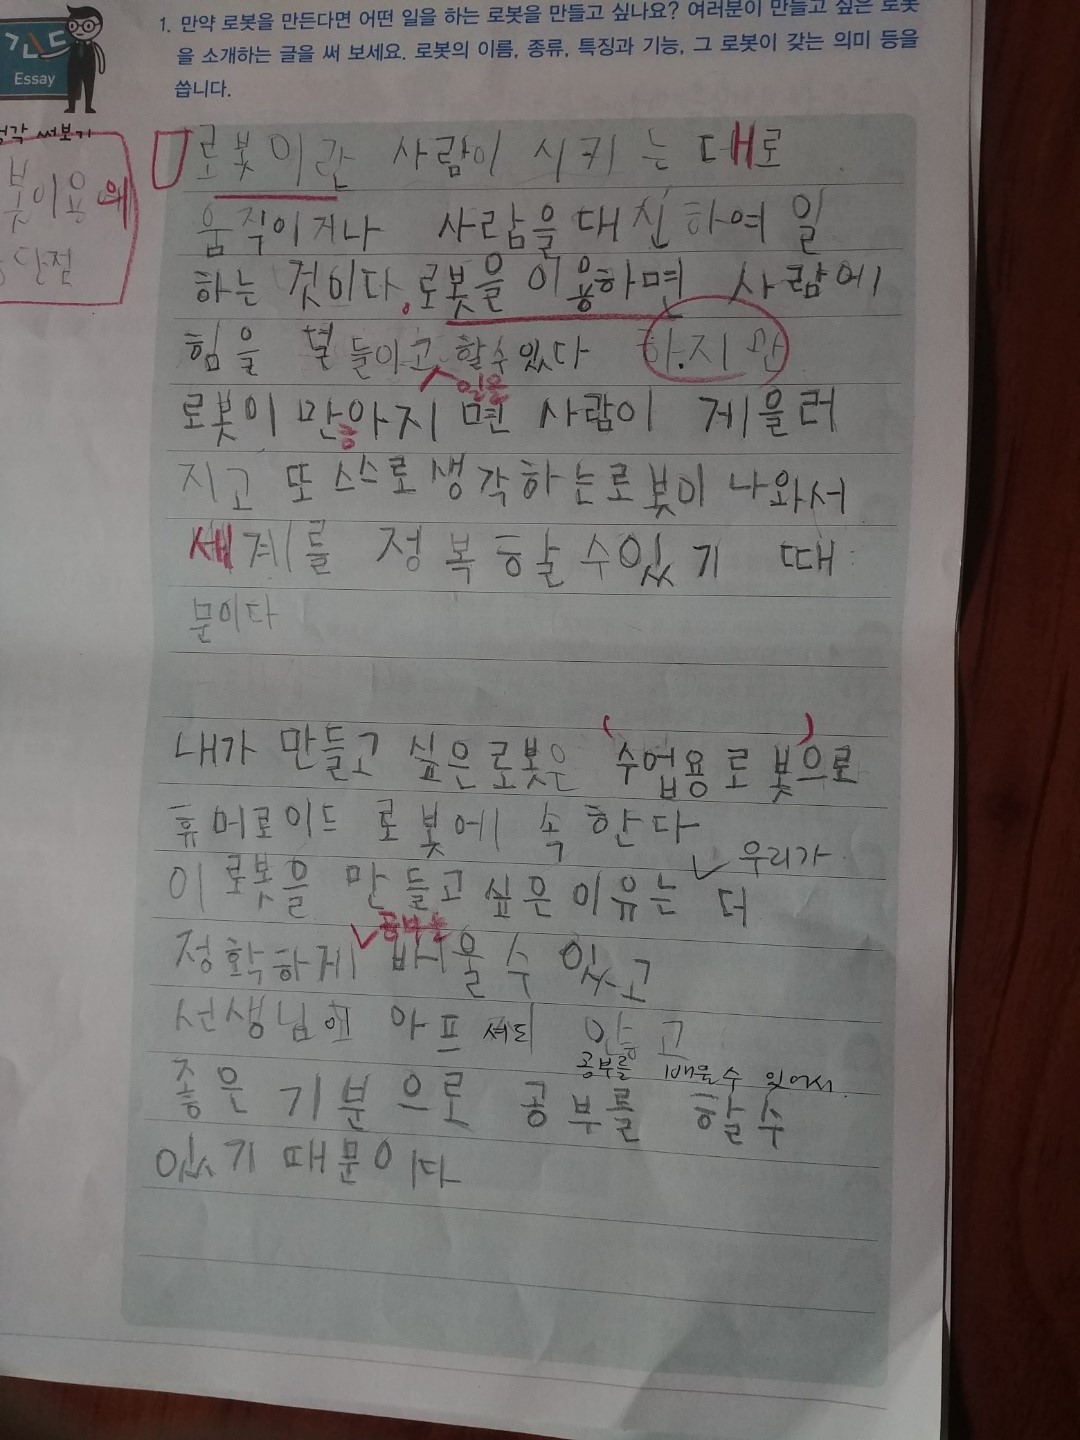 긴드
Essay
1. 만약 로봇을 만든다면 어떤 일을 하는 로봇을 만들고 싶나요? 여러분이 만들고 싶은 로봇
을 소개하는 글을 써 보세요. 로봇의 이름, 종류, 특징과 기능, 그 로봇이 갖는 의미 등을
씁니다.
생각 써보기
봇이용 왜
단점
로봇이란 사람이 시키는 대로
움직이거나 사람을 대신하여 일
하는 것이다. 로봇을 이용하면 사람에
힘을 덜 들이고 할수있다 하지만
일을
로봇이 많아지면 사람이 게을러
지고 또 스스로 생각하는로봇이 나와서
세계를 정복 할 수있기 때
문이다
내가 만들고 싶은로봇은 (수업용로봇)으로
휴머로이드 로봇에 속한다
우리가
이 로봇을 만들고싶은이유는 더
공부를
정확하게 배울수 있고
선생님에 아프셔도 않고
공부를 배울수 있어서
좋은 기분으로 공부를 할수
있기 때문이다